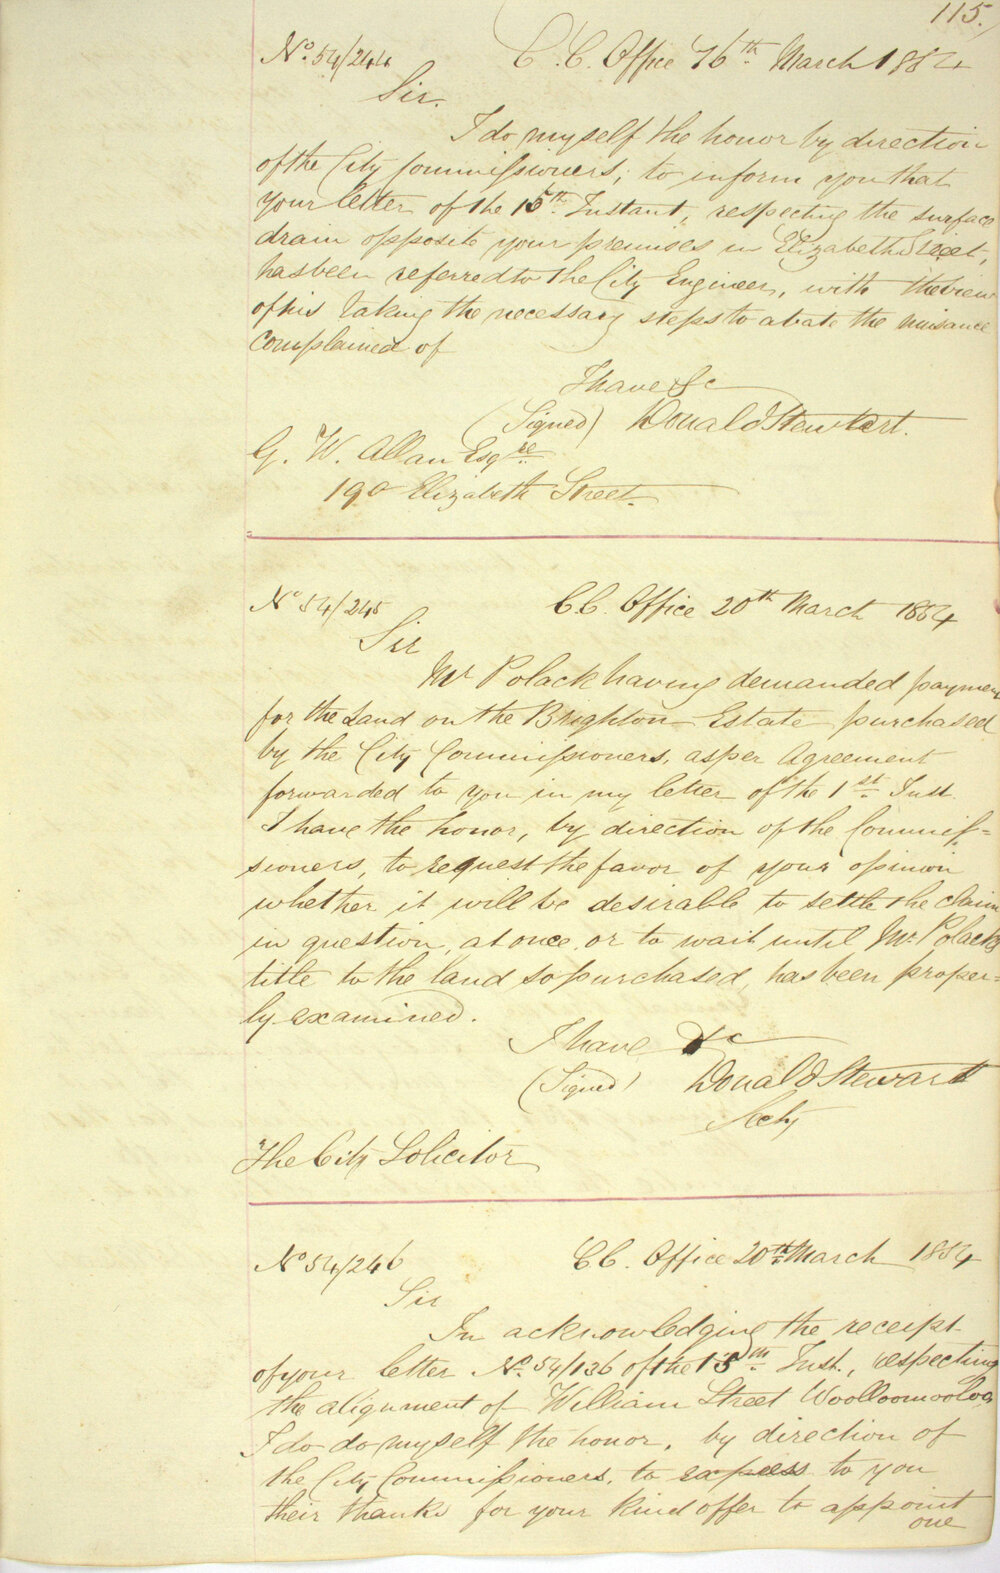 115.
No. 54/244 C. C. Office 16th March 1854
Sir.
I do myself the honor by direction
of the City Commissioners, to inform you that
your letter of the 15th Instant, respecting the surface
drain opposite your premises in Elizabeth Street,
has been referred to the City Engineer, with the view
of his taking the necessary steps to abate the nuisance
complained of
I have &c
(Signed) Donald Stewart.
G. W. Allan Esqre
190 Elizabeth Street.
No 54/245 C C. Office 20th March 1854
Sir
Mr Polack having demanded paymen
for the Land on the Brighton Estate purchased
by the City Commissioners, as per Agreement
forwarded to you in my letter of the 1st. Inst
I have the honor, by direction of the Commis=
sioners, to request the favor of your opinion
whether it will be desirable to settle the claim
in question, at once, or to wait until Mr. Polacks
title to the land so purchased, has been proper=
ly examined.
I have &c
(Signed) Donald Stewart
Secty
The City Solicitor
No 54/246 C C. Office 20th. March 1854
Sir
In acknowledging the receipt
of your letter No. 54/136 of the 15th. Inst., respecting
the alignment of William Street Woolloomooloo,
I do do myself the honor, by direction of
the City Commissioners, to express to you
their thanks for your kind offer to appoint
one